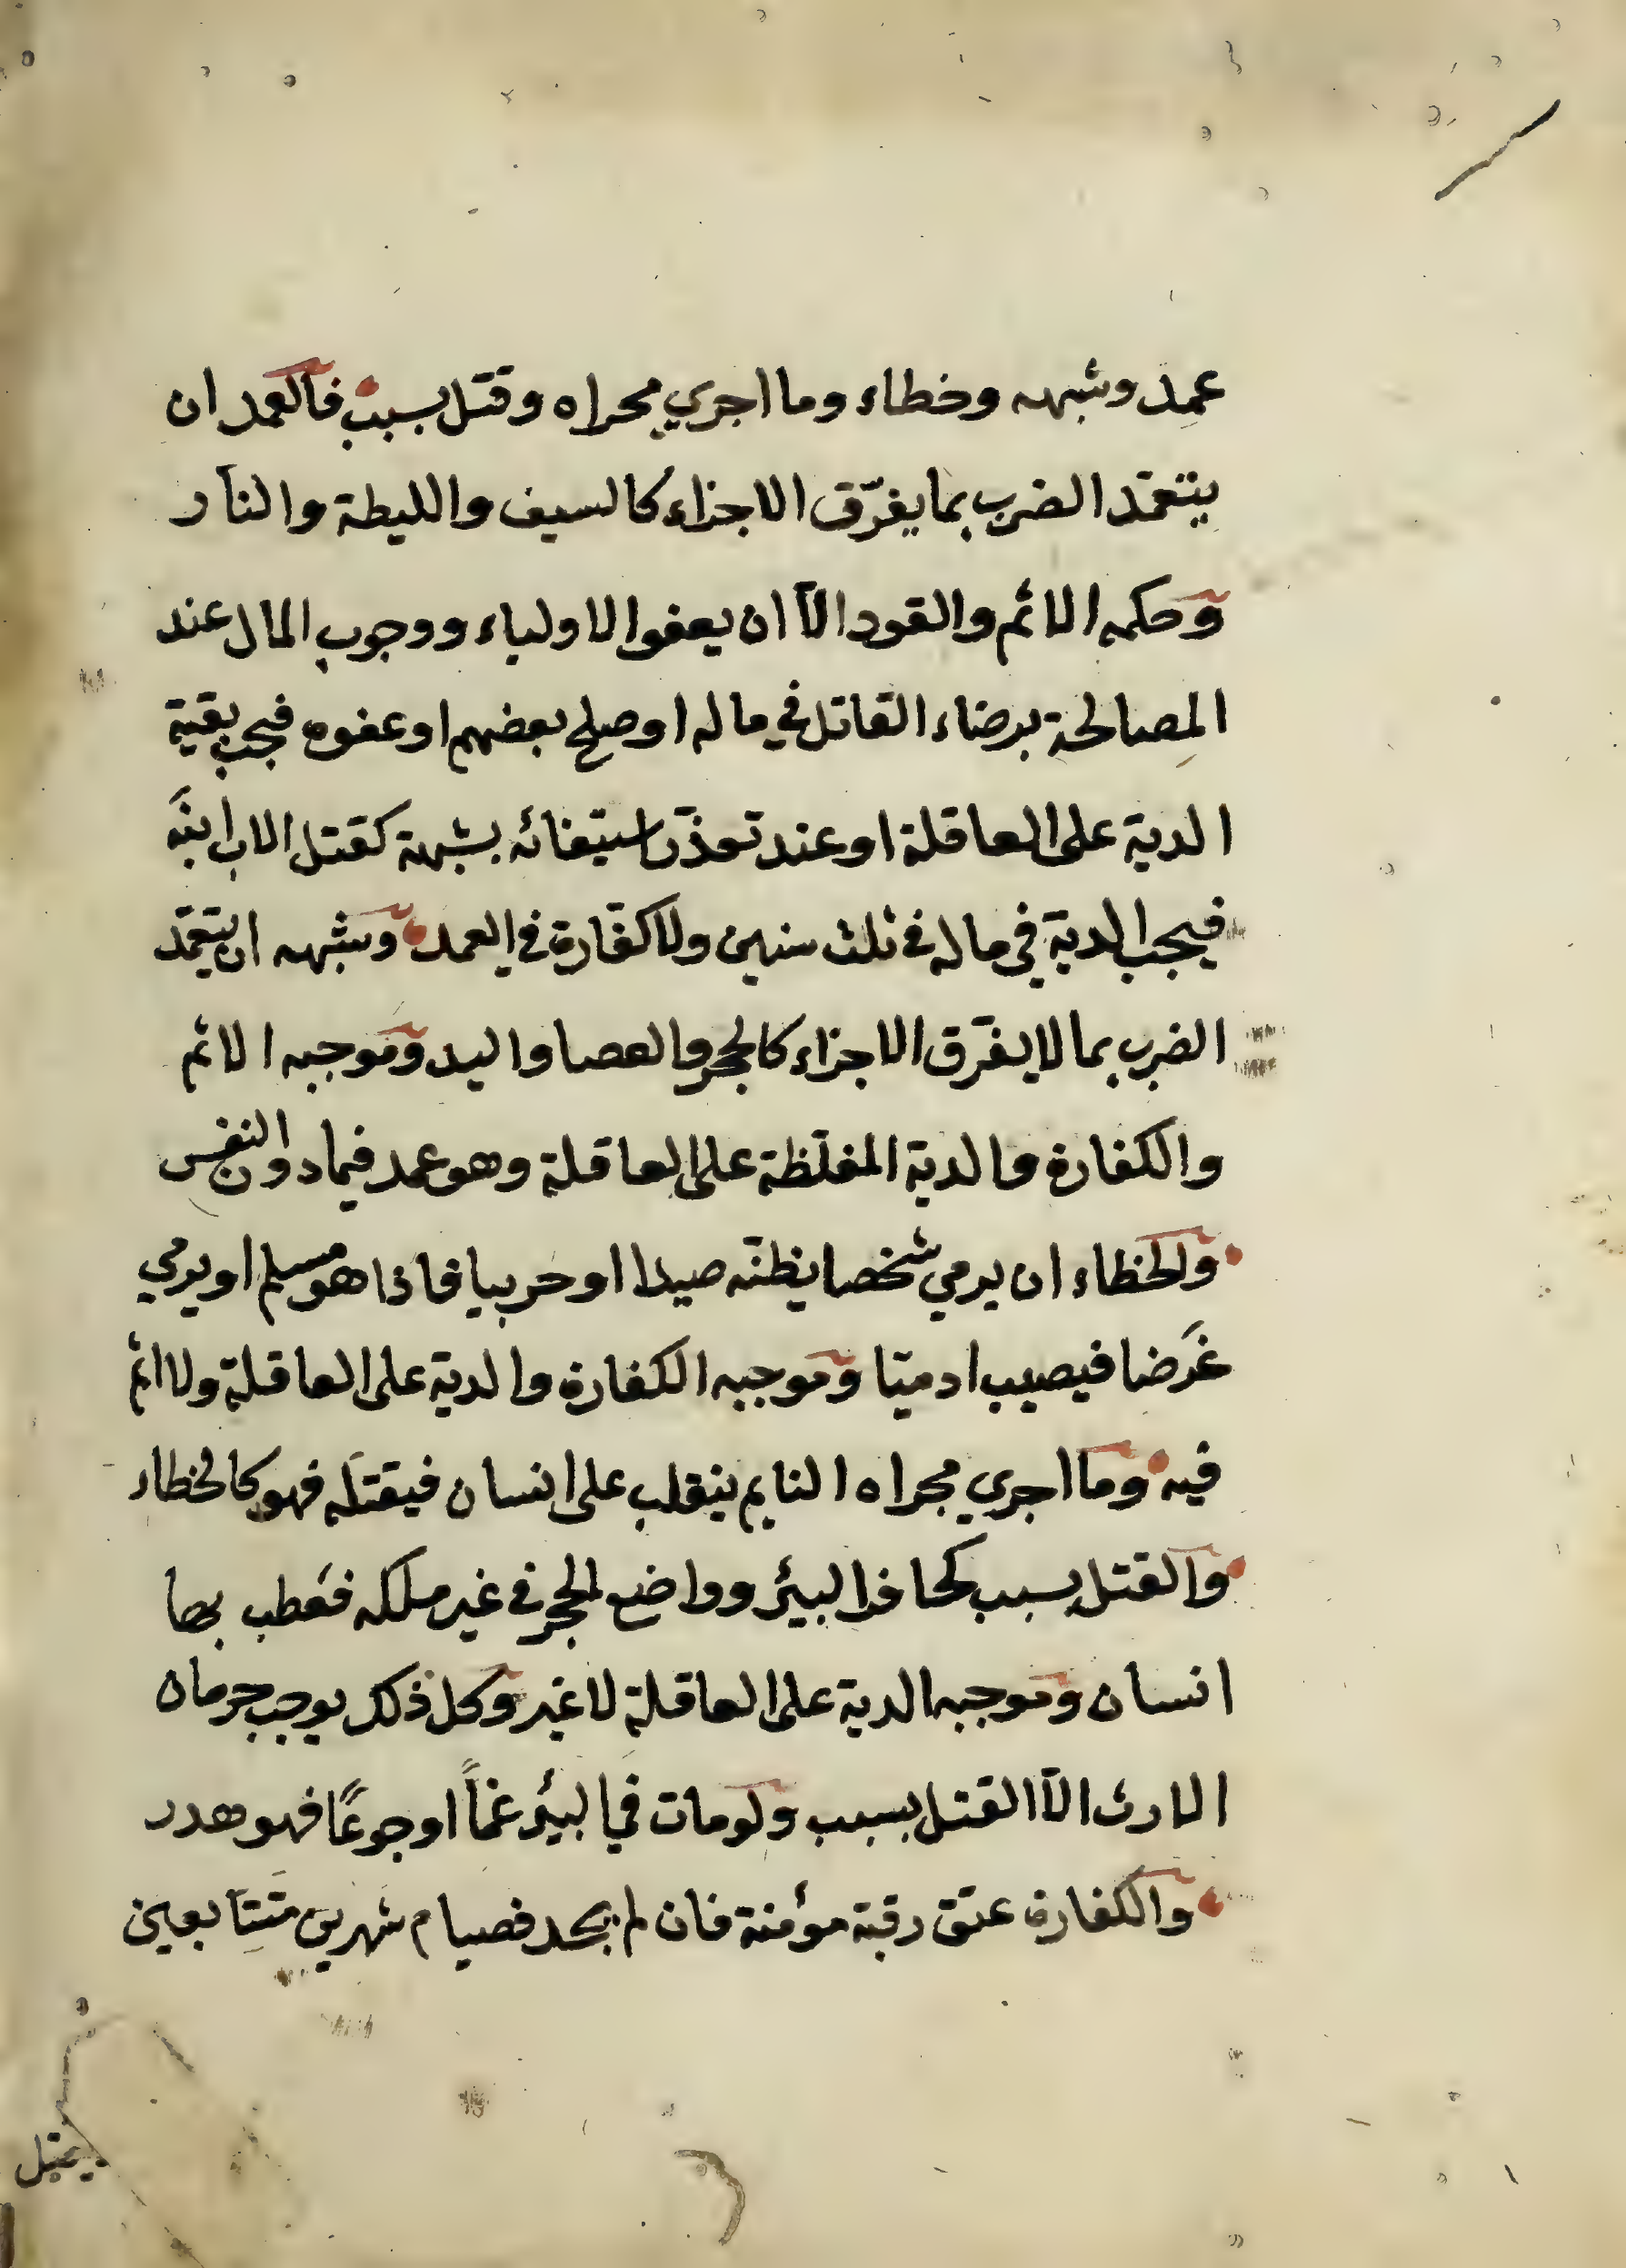 عمد وشبهه وخطاء وما اجري مجراه وقتل بسبب فالعمد ان
يتعمّد الضرب بما يفرّق الاجزاء كالسيف والليطة والنار
وحكمه الاثم والقود الّا ان يعفوا الاولياء ووجوب المال عند
المصالحة برضاء القاتل في ماله او صلح بعضهم او عفوه فيجب بقية
الدية على العاقلة او عند تعذّر استيفائه بشبهة كقتل الاب ابنَه
فيجب الدية في ماله في ثلث سنين ولا كفّارة في العمد وشبهه ان يتعمّد
الضرب بما لا يفرّق الاجزاء كالحجر والعصا واليد وموجبه الاثم
والكفارة والدية المغلّظة على العاقلة وهو عمد فيما دون النفس
والخطاء ان يرمي شخصا يظنّه صيدا او حربيا فاذا هو مسلم او يرمي
غَرَضا فيصيب ادميّا وموجبه الكفارة والدية على العاقلة ولا اثم
فيه وما اجري مجراه النايم ينقلب على انسان فيقتله فهو كالخطاء
والقتل بسبب كحافر البئر وواضع الحجر في غير ملكه فعَطِب بها
انسان وموجبه الدية على العاقلة لا غير وكل ذلك يوجب حرمان
الارث الّا القتل بسبب ولو مات في البئر غمّاً او جوعًا فهو هدر
والكفارة عتق رقبة مؤمنة فان لم يجد فصيام شهرين متَتِابعين